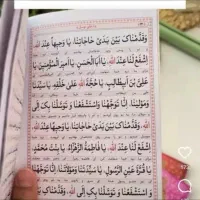 وَقَدَّمْنَاكَ بَيْنَ يَدَىْ حَاجَاتِنَا، يَا وَجِيهًا عِنْدَ اللهِ،
اِشْفَعْ لَنَا عِنْدَ اللهِ، يَا اَبَا الْحَسَنِ، يَا اَمِيرَ الْمُؤْمِنِينَ، يَا
عَلِىَّ بْنَ اَبِيطَالِبٍ، يَا حُجَّةَ اللهِ عَلَى خَلْقِهِ، يَا سَيِّدَنَا
وَمَوْلَينَا، اِنَّا تَوَجَّهْنَا وَاسْتَشْفَعْنَا وَ تَوَسَّلْنَا بِكَ اِلَى
اللهِ، وَقَدَّمْنَاكَ بَيْنَ يَدَىْ حَاجَاتِنَا، يَا وَجِيهًا عِنْدَ اللهِ،
اِشْفَعْ لَنَا عِنْدَ اللهِ، يَا فَاطِمَةَ الزَّهْرَاءُ، يَا بِنْتَ مُحَمَّدٍ،
يَا قُرَّةَ عَيْنِ الرَّسُولِ، يَا سَيِّدَتَنَا وَمَوْلَاتَنَا، اِنَّا تَوَجَّهْنَا
وَاسْتَشْفَعْنَا وَ تَوَسَّلْنَا بِكِ اِلَى اللهِ، وَقَدَّمْنَاكِ